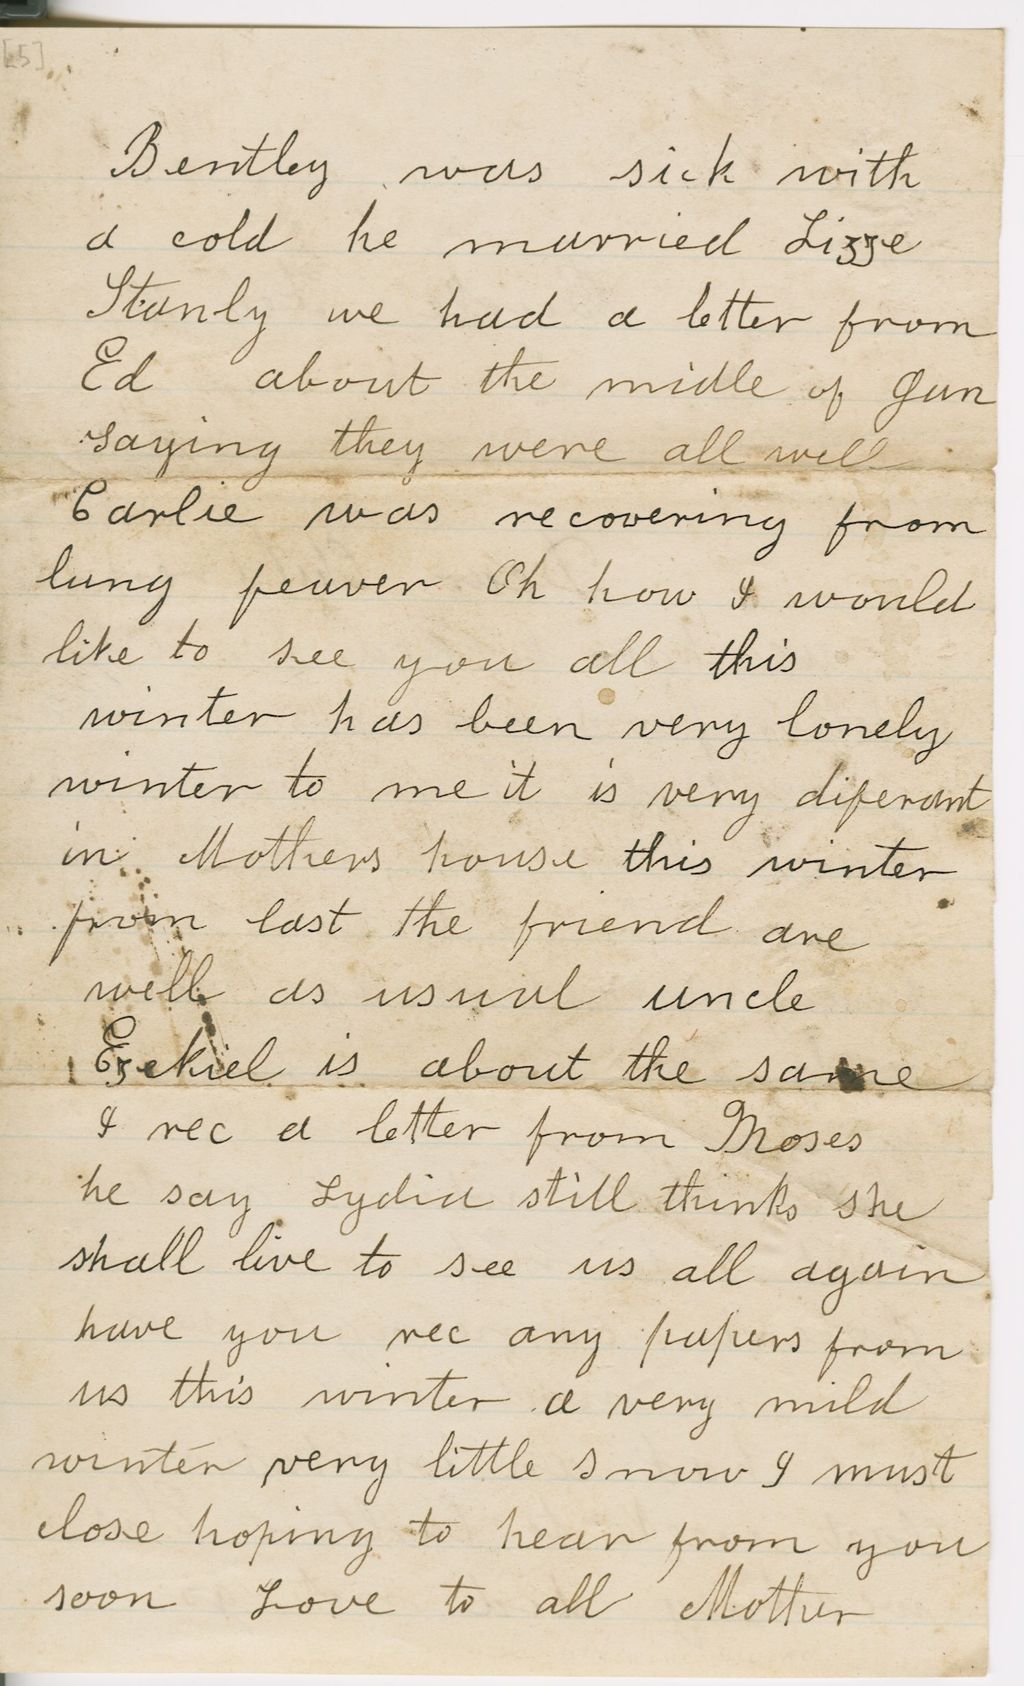 [5]
Bentley was sick with
a cold he married Lizze
Stanly we had a letter from
Ed about the midle of Jun
saying they were all well
Carlie was recovering from
lung feuver Oh how I would
like to see you all this
winter has been very lonely
winter to me it is very diferant
in Mothers house this winter
from last the friend are
well as usual uncle
Ezekiel is about the same
I rec a letter from Moses
he say Lydia still thinks she
shall live to see us all again
have you rec any papers from
us this winter a very mild
winter very little snow I must
close hoping to hear from you
soon Love to all Mother